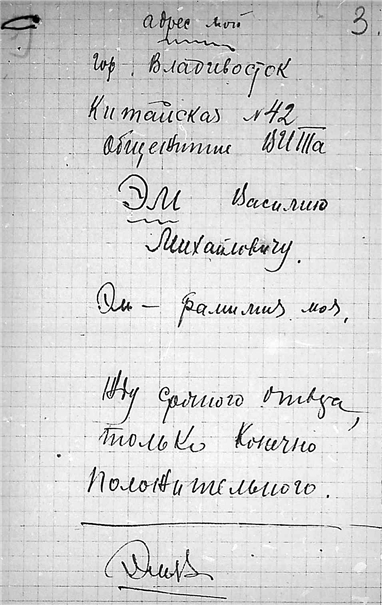 3.
адрес мой
гор. Владивосток
Китайская №42
Общежитие ВИТа
ЭМ Василию
Михайловичу.
Эм – фамилия моя,
Жду срочного ответа,
только конечно
положительного.